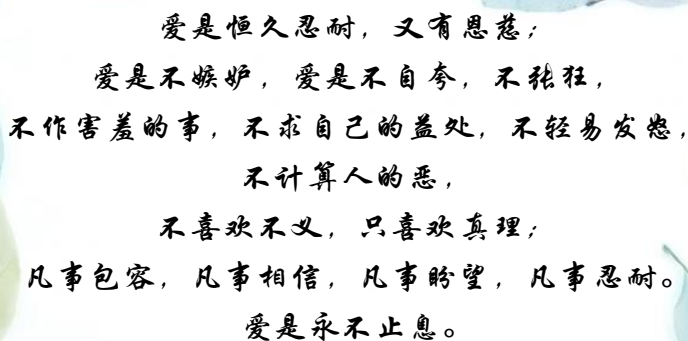 爱是恒久忍耐，又有恩慈；
爱是不嫉妒，爱是不自夸，不张狂，
不作害羞的事，不求自己的益处，不轻易发怒，
不计算人的恶，
不喜欢不义，只喜欢真理；
凡事包容，凡事相信，凡事盼望，凡事忍耐。
爱是永不止息。